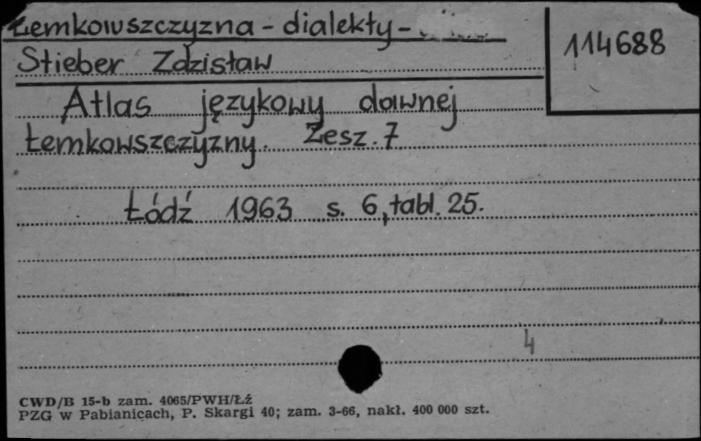 Łemkowszczyzna - dialekty -
114688
Stieber Zdzisław
Atlas językowy dawnej
Łemkowszczyzny. Zesz. 7
Łódź 1963 s. 6, tabl. 25.
4
CWD/B 15-b zam. 4065/PWH/Łź
PZG w Pabianicach, P. Skargi 40; zam. 3-66, nakł. 400 000 szt.